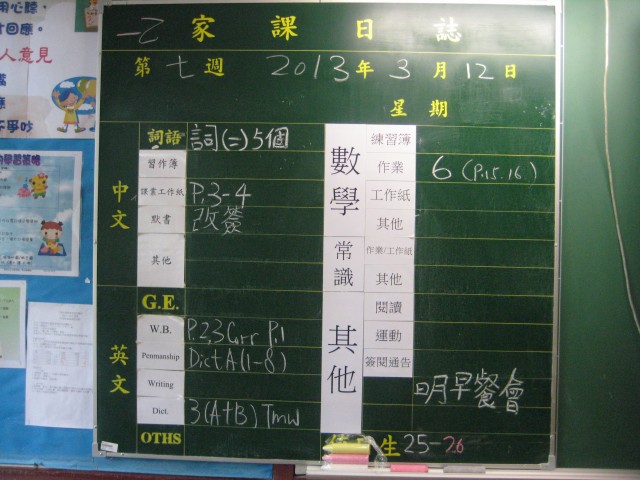 一乙 家課日誌
第七週 2013年3月12日
星期
詞語 詞(二)5個
習作簿
課書工作紙 P.3-4
默書 改簽
其他
中文
G.E.
W.B. P.2,3 Corr P.1
Penmanship Dict A (1-8)
Writing
Dict. 3(A+B) Tmw
英文
OTHS
數學
練習簿
作業 6 (P.15.16.)
工作紙
其他
常識
作業/工作紙
其他
其他
閱讀
運動
簽閱通告
明早餐會
生 25-26
人意見